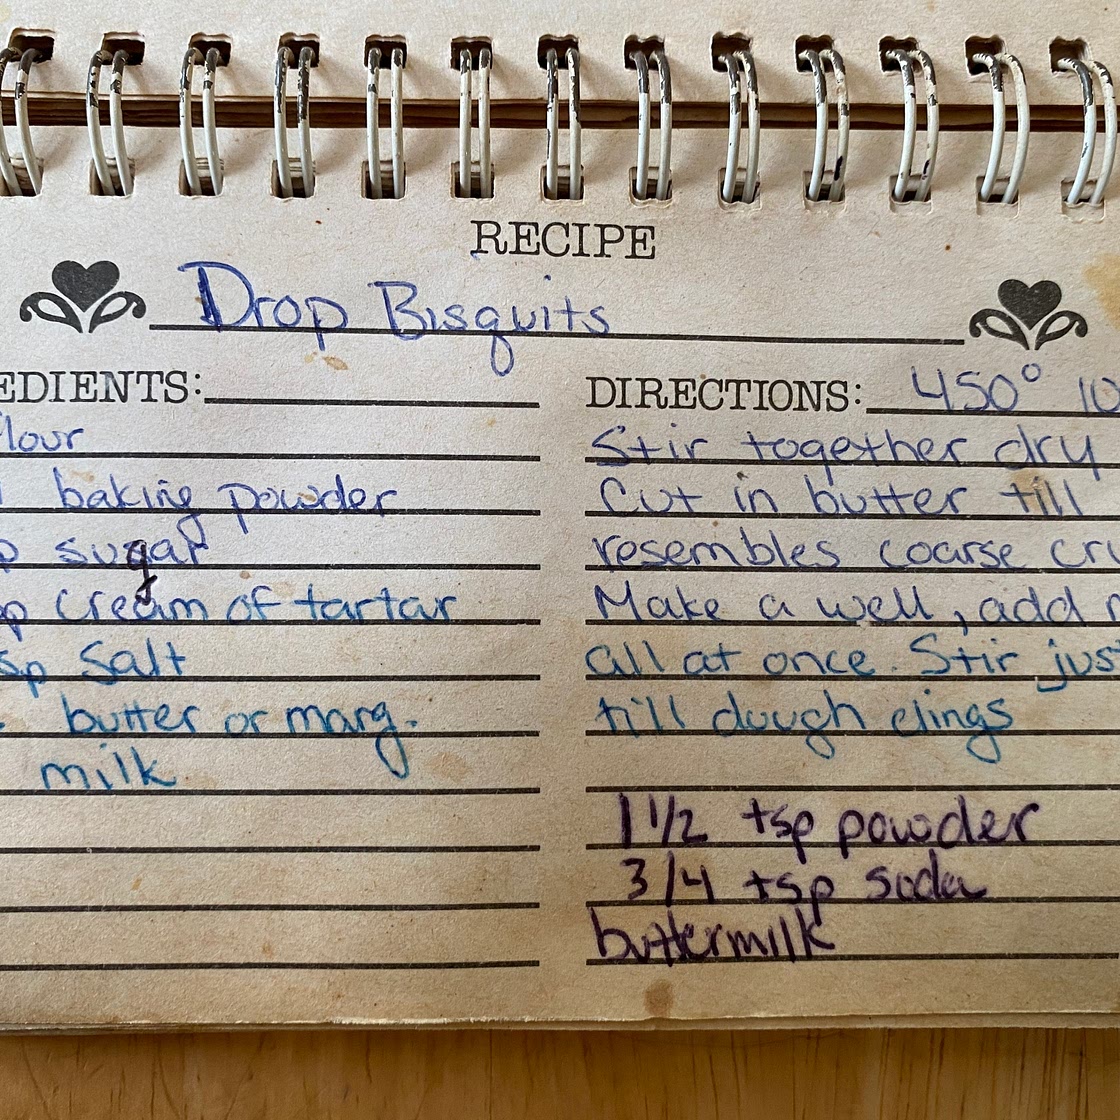 RECIPE
Drop Bisquits
EDIENTS:
flour
baking powder
p sugar
sp cream of tartar
sp Salt
butter or marg.
milk
DIRECTIONS: 450° 10
Stir together dry
Cut in butter till
resembles coarse cru
Make a well, add
all at once. Stir just
till dough clings
1 1/2 tsp powder
3/4 tsp soda
buttermilk